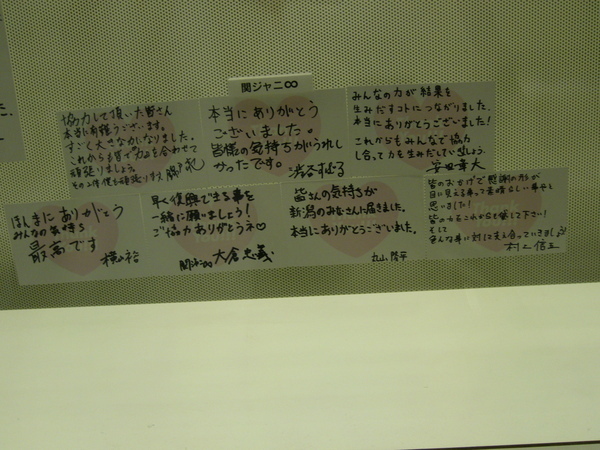 関ジャニ∞
協力して頂いた皆さん
本当に有難うございます。
すごく大きな力になりました。
これからも皆で力を合わせて
頑張りましょう。
その為に僕も頑張ります
本当にありがとう
ございました。
皆様の気持ちがうれし
かったです。
渋谷すばる
みんなの力が結果を
生みだすコトにつながりました。
本当にありがとうございました!
これからもみんなで協力
し合って力を生みだしていきましょう。
安田章大
ほんまにありがとう
みんなの気持ち
最高です
横山裕
早く復興できる事を
一緒に願いましょう!
ご協力ありがとうネ♡
関ジャニ∞ 大倉忠義
皆さんの気持ちが
新潟のみなさんに届きました。
本当にありがとうございました。
丸山隆平
皆のおかげで感謝の形が
目に見える事って素晴らしい事やと
思いました!
そして
色んな事に対して支え合っていきましょう!
村上信五